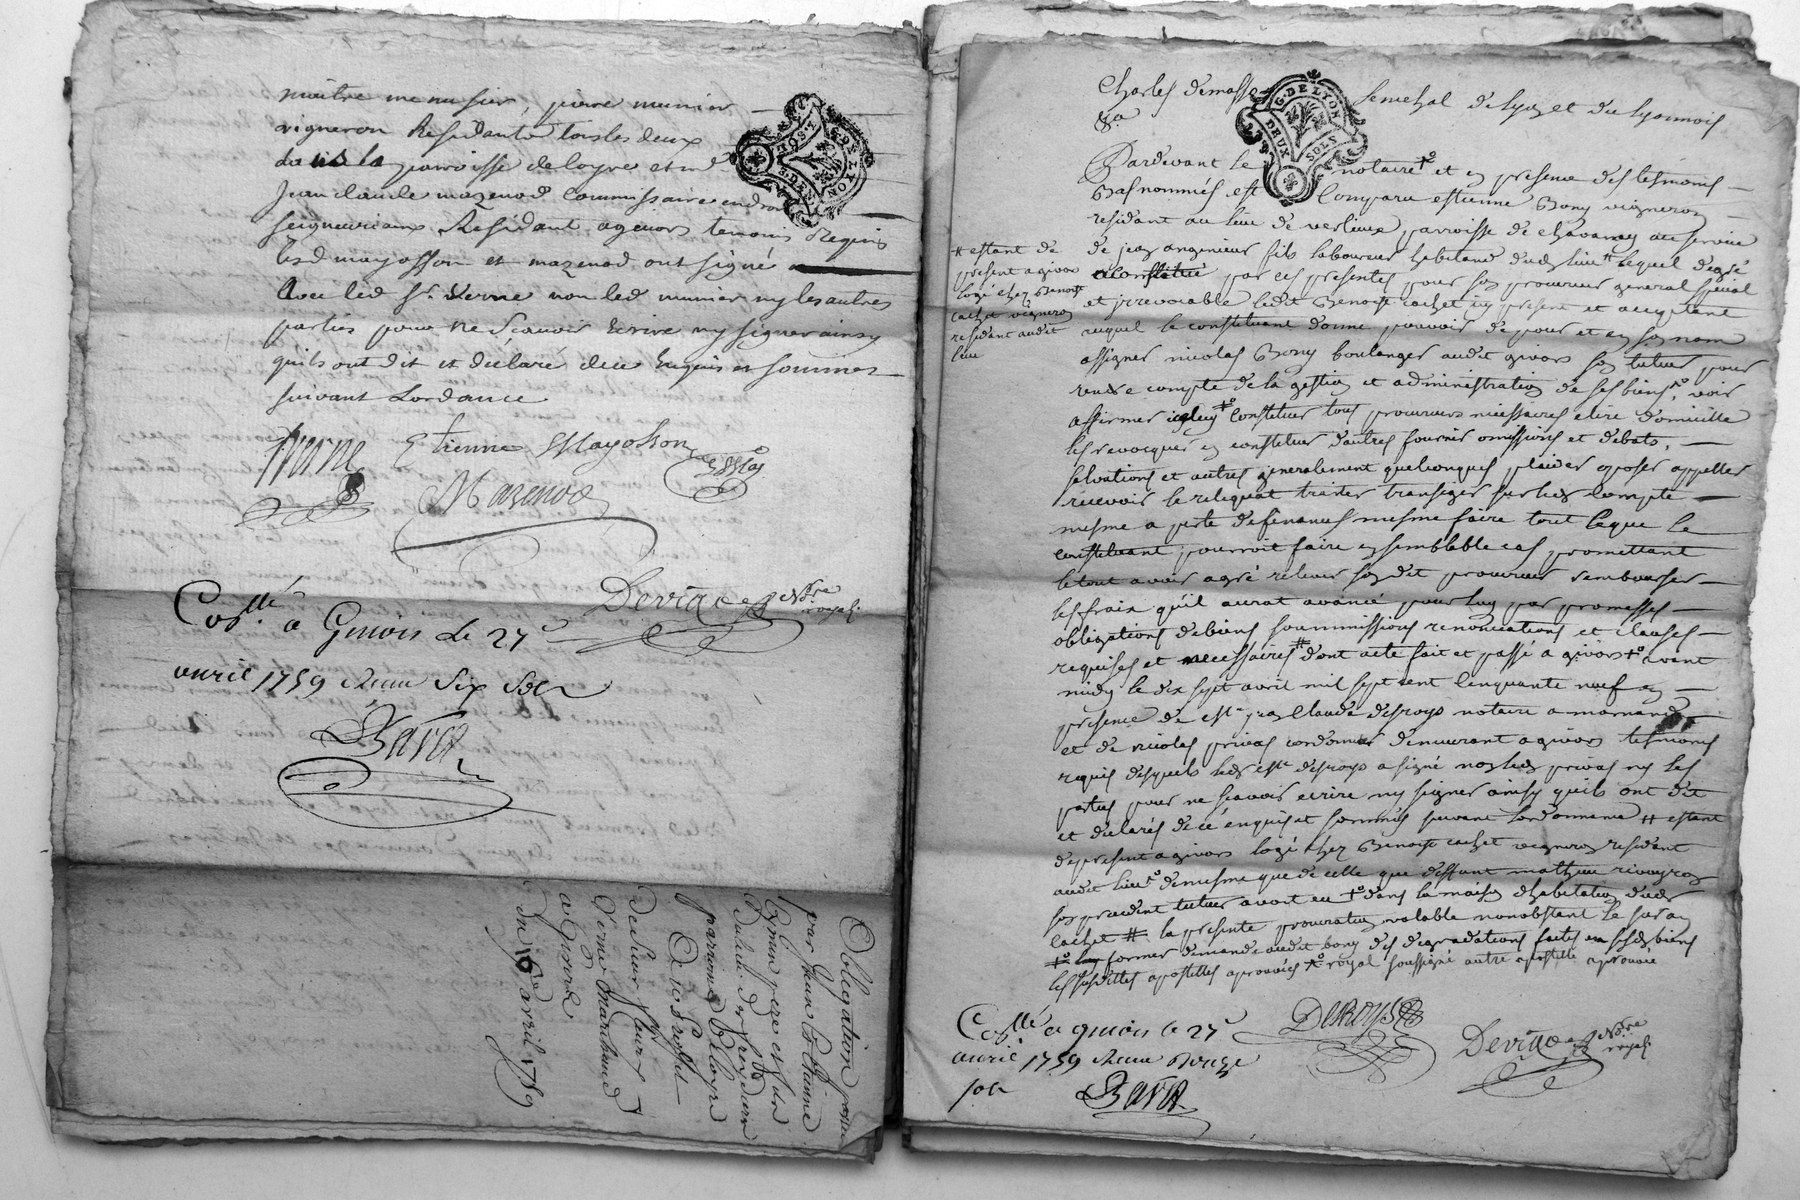 maitre menusier, pierre munier
vigneron Residants tous les deux
la parroisse de loyre et md
Jean claude mazenod Commissaire en droits
seigneuriaux Residant a givors temoins Requis
lesd mayosson et mazenod ont signé
avec led Sr. Verne non led munier ny les autres
parties pour ne Scavoir Ecrire ny signer ainsy
quils ont dit et déclaré deue Enquis et sommes
suivant Lordance
Jverne Etienne Mayosson
Mazenod
Devrac Nore royal
Conllé a Givors Le 27e
avril 1759 Reçu Six Sols
Bavot
Obligation passée
par Jean
père et fils
parroisse de loyre
De 105# Proffit
De Sieur
Verne marchand
a givors
Du 10 avril 1759
G. DE LYON
DEUX SOLS
Charles demasso senechal de lyon et du lyonnois
Pardevant le notaire et en presence des tesmoins
Bas nommés est Comparu estienne Bony vigneron
residant au lieu de verlieux parroisse de chavanay au service
de jean angenieur fils laboureur habitant dud lieu # lequel de gré
a constitué par ces presentes pour son procureur general special
et jrrevocable ledit Benoist cachet icy present et acceptant
auquel le constituant donne pouvoir de pour et en son nom
assigner nicolas Bony boulanger audit givors son tuteur pour
rendre compte de la gestion et administration de ses biens, voir
affirmer iceluy constituer tous procureurs necessaires elire domicille
les revocquer en constituer dautres fournir omissions et debats,
salvations et autres generalement quelconques plaider opposer appeller
recevoir le reliquat traiter transiger sur led compte
mesme a perte de finances mesme faire tout ce que le
constituant pourroit faire en semblable cas promettant
le tout avoir agré relever son dit procureur rembourser
les frais qu'il aurat avancé pour luy par promesses
obligations de biens soummissions renonciations et clauses
requises et necessaires # dont acte fait et passé a givors avant
midy le dix sept avril mil sept cent cinquante neuf en
presence de est. jean Claude desroys notaire a mornand
et de nicolas privas cordonnier demeurant a givors tesmoins
requis desquels led est desroys a signé non led privas ny les
parties pour ne scavoir ecrire ny signer ainsy quils ont dit
et declarés de ce enquis et sommés suivant lordonnance # estant
de present a givors logé chez Benoist cachet vigneron residant
audit lieu de mesme que de celle que deffunt mathieu rivoyron
son precedent tuteur avoit eu dans la maison dhabitation dud
cachet # la presente procuration valable nonobstant le suran
former demande audit bony des degradations faites en sesd biens
les susdittes apostilles aprouvées royal soussigné autre apostille aprouvée
# estant de
present a givors
logé chez Benoist
cachet vigneron
residant audit
lieu
Conllé a givors le 27e
avril 1759 Reçu Douze
sols
Bavot
DESROYS
Devrac Nore royal